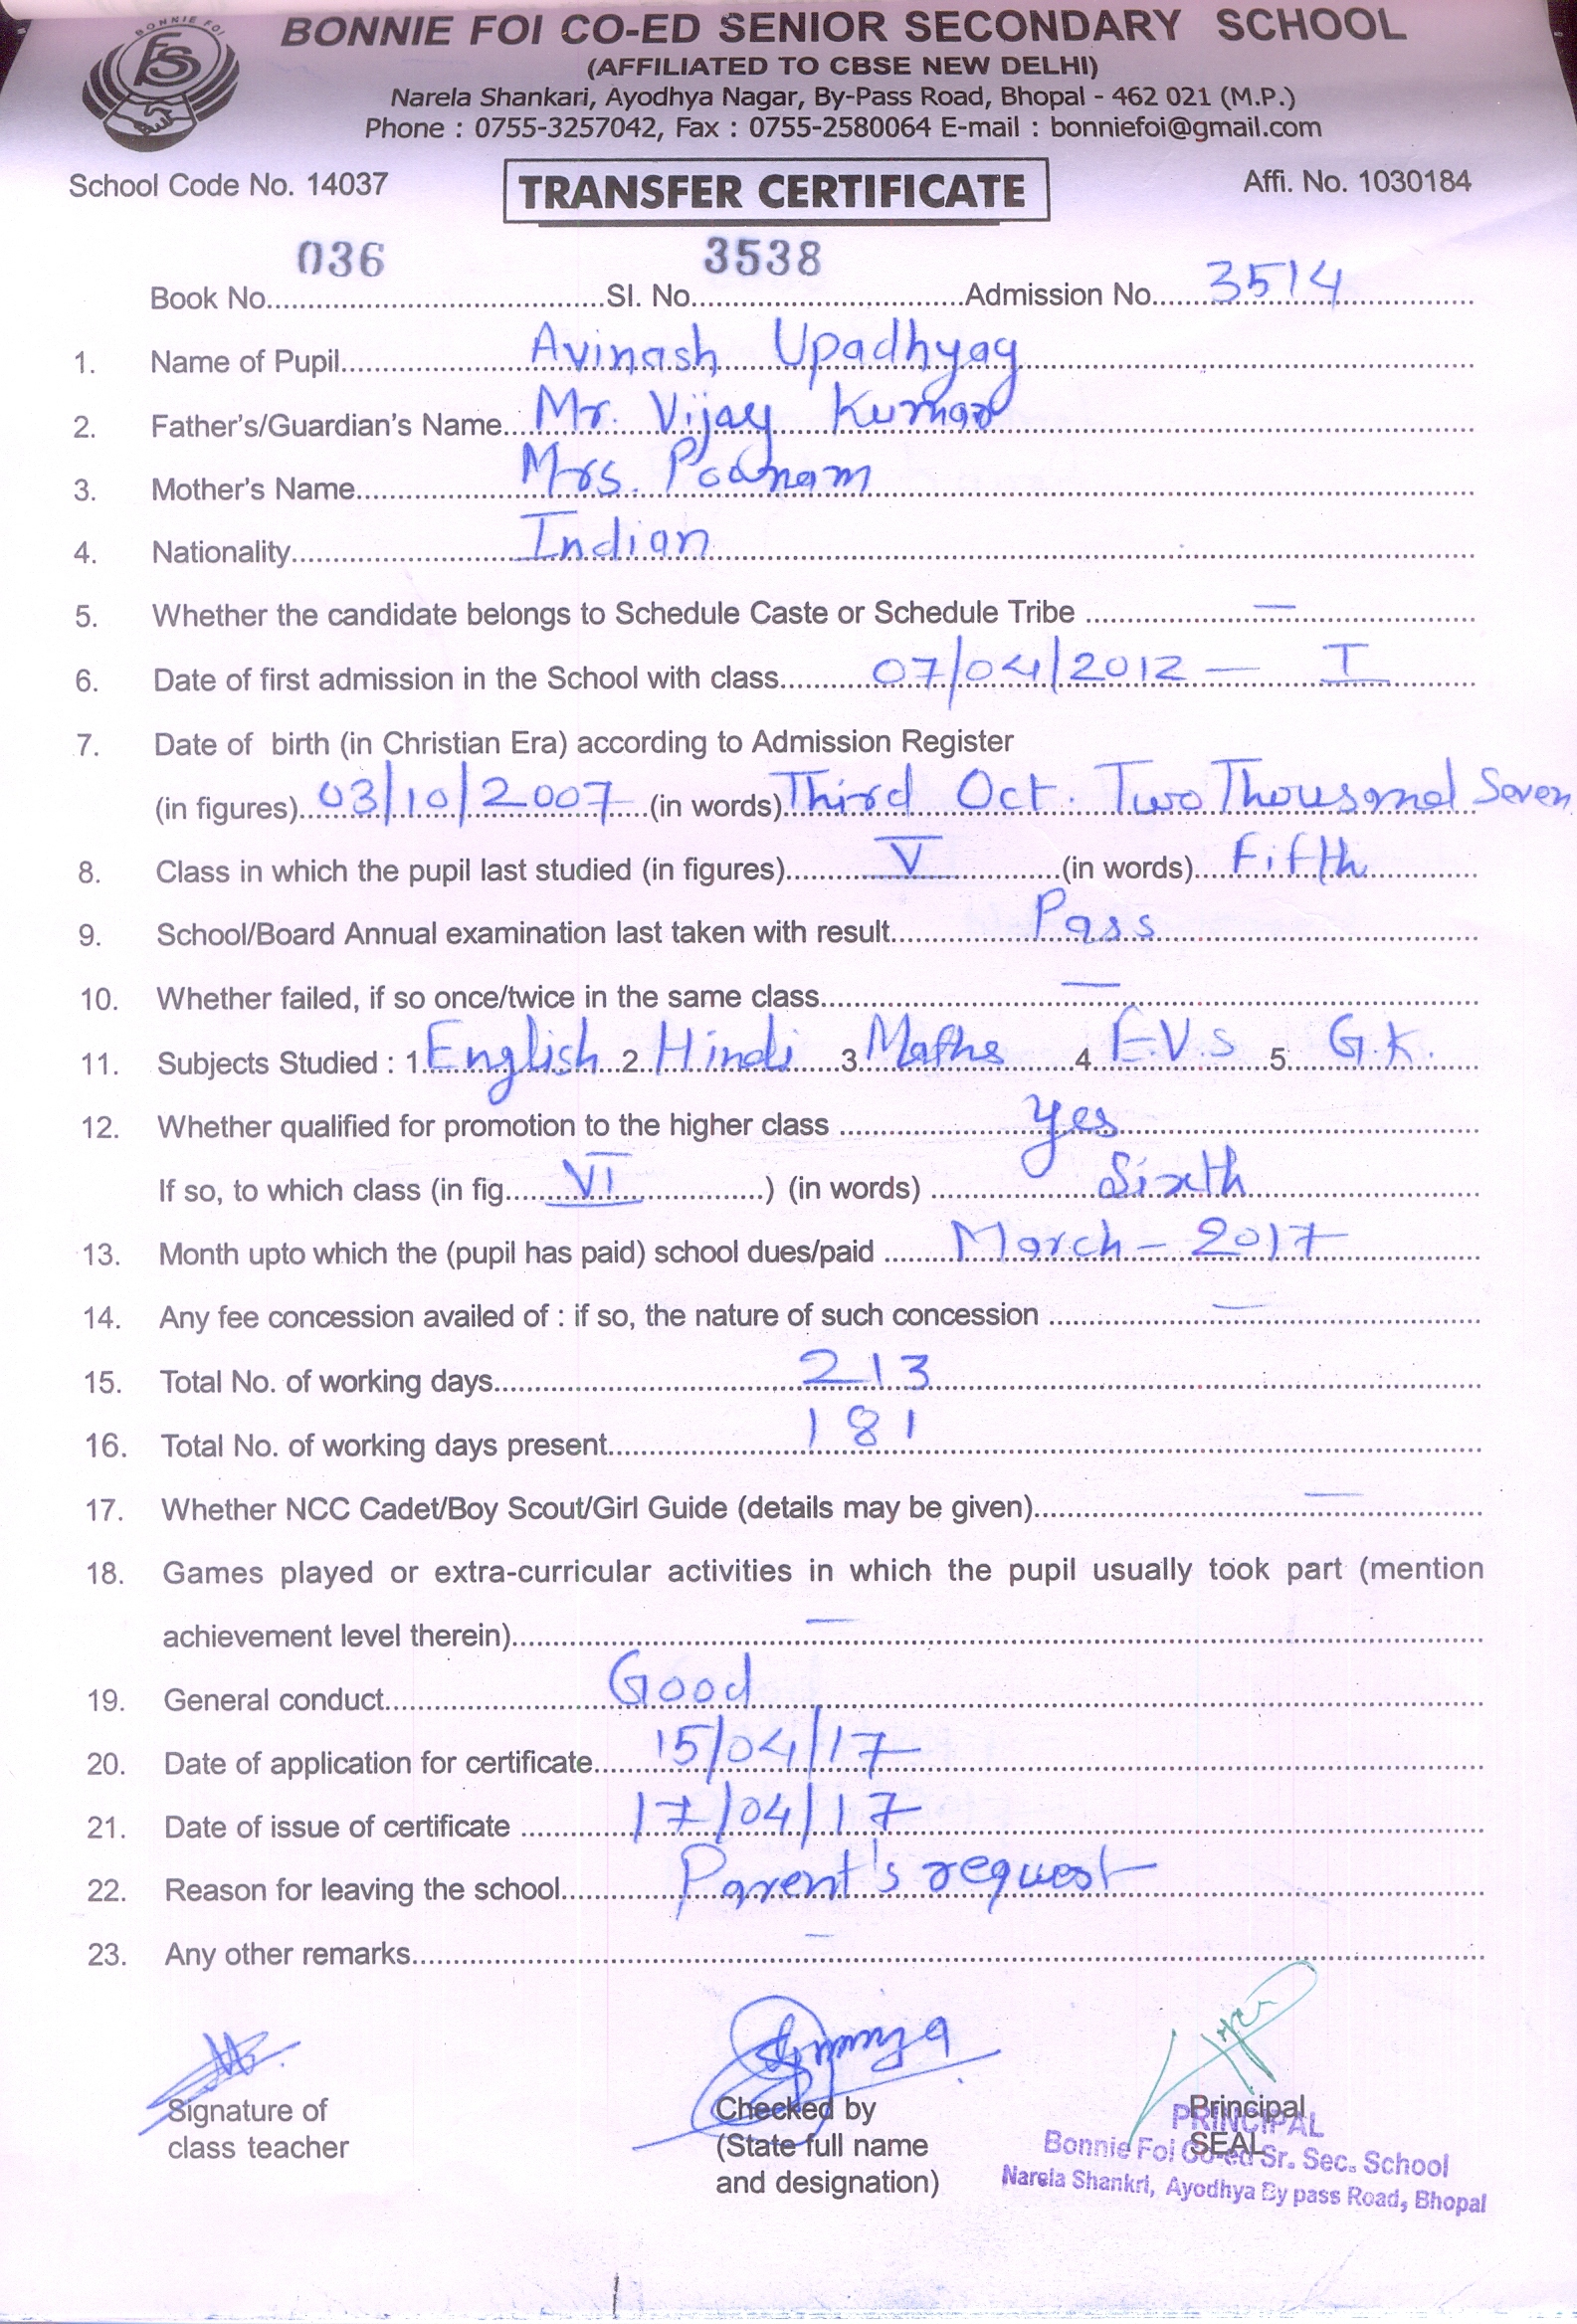 BONNIE FOI
BONNIE FOI CO-ED SENIOR SECONDARY SCHOOL
(AFFILIATED TO CBSE NEW DELHI)
Narela Shankari, Ayodhya Nagar, By-Pass Road, Bhopal - 462 021 (M.P.)
Phone : 0755-3257042, Fax : 0755-2580064 E-mail : bonniefoi@gmail.com
School Code No. 14037 TRANSFER CERTIFICATE Affi. No. 1030184
Book No. 036 SI. No. 3538 Admission No. 3514
1. Name of Pupil Avinash Upadhyay
2. Father's/Guardian's Name Mr. Vijay Kumar
3. Mother's Name Mrs. Poonam
4. Nationality Indian
5. Whether the candidate belongs to Schedule Caste or Schedule Tribe —
6. Date of first admission in the School with class 07/04/2012 — I
7. Date of birth (in Christian Era) according to Admission Register
(in figures) 03/10/2007 (in words) Third Oct. Two Thousand Seven
8. Class in which the pupil last studied (in figures) V (in words) Fifth
9. School/Board Annual examination last taken with result Pass
10. Whether failed, if so once/twice in the same class —
11. Subjects Studied : 1. English 2. Hindi 3. Maths 4. E.V.S 5. G.K.
12. Whether qualified for promotion to the higher class yes
If so, to which class (in fig. VI ) (in words) Sixth
13. Month upto which the (pupil has paid) school dues/paid March - 2017
14. Any fee concession availed of : if so, the nature of such concession —
15. Total No. of working days 213
16. Total No. of working days present 181
17. Whether NCC Cadet/Boy Scout/Girl Guide (details may be given) —
18. Games played or extra-curricular activities in which the pupil usually took part (mention
achievement level therein) —
19. General conduct Good
20. Date of application for certificate 15/04/17
21. Date of issue of certificate 17/04/17
22. Reason for leaving the school Parent's request
23. Any other remarks —
Signature of Checked by Principal
class teacher (State full name SEAL
and designation)
PRINCIPAL
Bonnie Foi Co-ed Sr. Sec. School
Narela Shankri, Ayodhya By pass Road, Bhopal